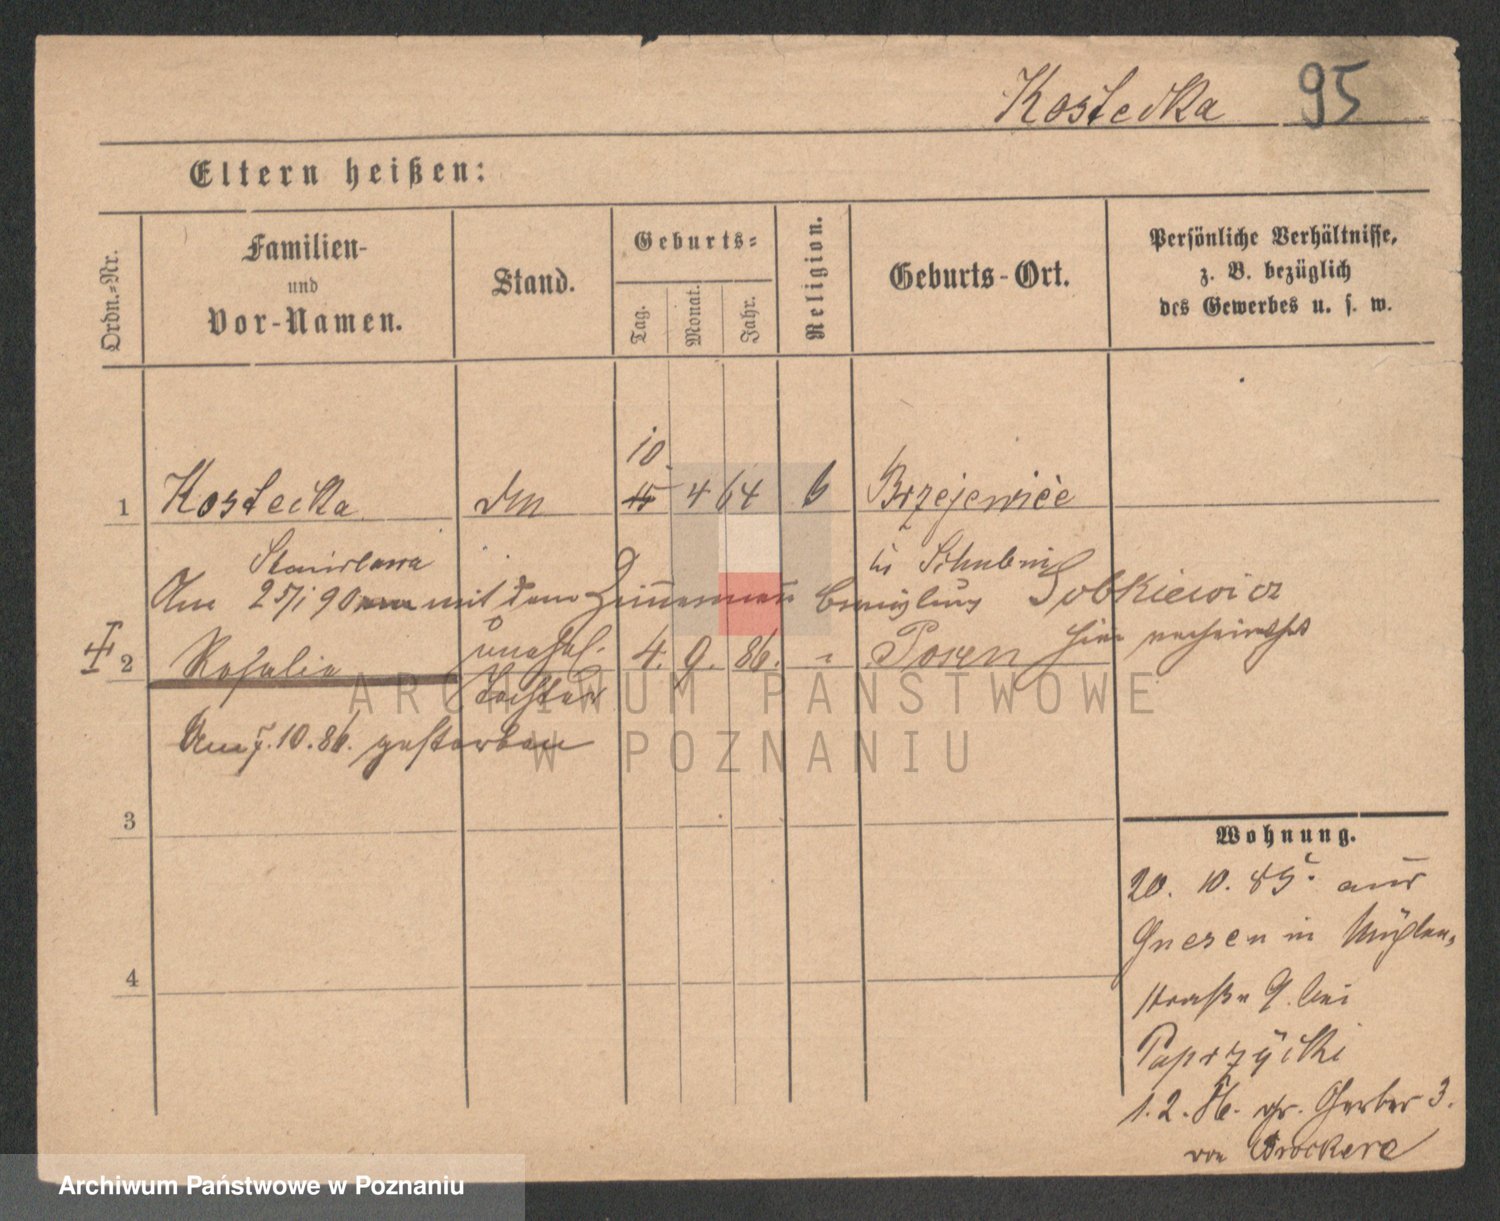 Kostecka 95
Eltern heißen:
Ordn.-Nr.
Familien-
und
Vor-Namen.
Stand.
Geburts-
Tag.
Monat.
Jahr.
Religion.
Geburts-Ort.
Persönliche Verhältnisse,
z. B. bezüglich
des Gewerbes u. s. w.
10
1 Kostecka 15 4 64 Brzejewice
Stanislawa
Am 25/1 90 mit dem Sobkiewicz
hier verheirathet
2 Rosalie unehel. 4. 9. 86. " Posen
Tochter
Am 7. 10. 86. gestorben
3
4
Wohnung.
20. 10. 85. aus
Gnesen in Mühlen-
straße 9 bei
Paprzÿcki
1. 2. 86. gr. Gerber 3.
von Brockere
ARCHIWUM PAŃSTWOWE
W POZNANIU
Archiwum Państwowe w Poznaniu